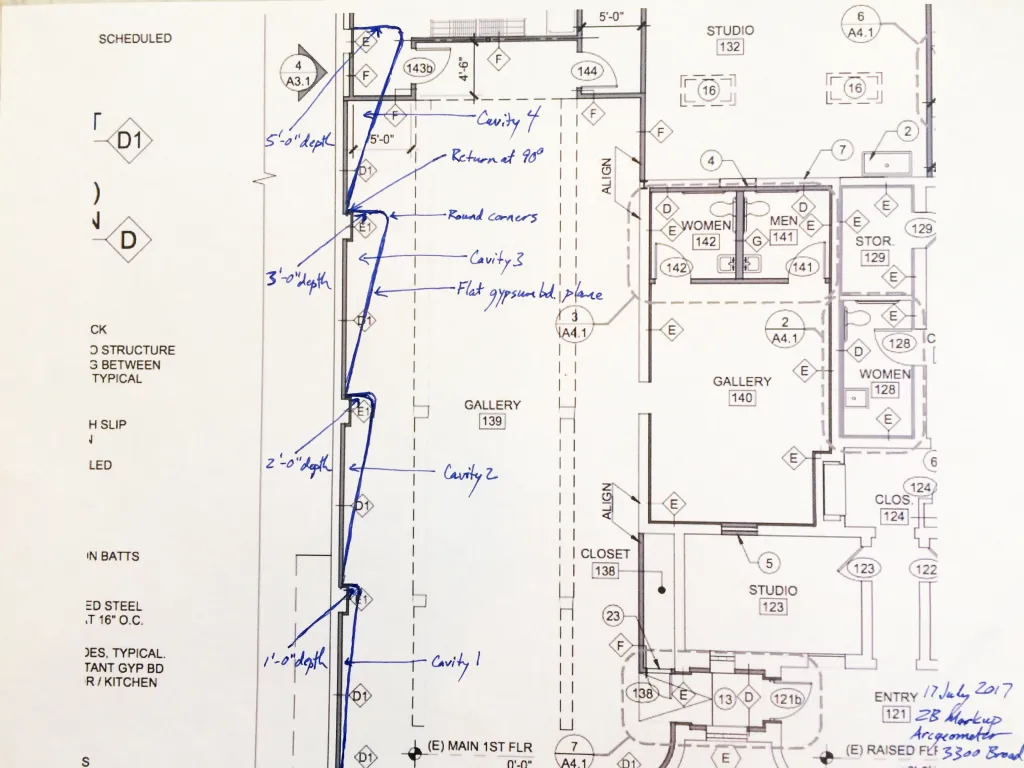 SCHEDULED
D1
D
CK
D STRUCTURE
G BETWEEN
TYPICAL
H SLIP
N
LED
ON BATTS
ED STEEL
AT 16" O.C.
DES, TYPICAL.
TANT GYP BD
R / KITCHEN
S
4
A3.1
E
F
143b
4'-6"
F
144
5'-0"
STUDIO
132
16
16
6
A4.1
F
F
F
2
7
4
5'-0"
5'-0" depth
Cavity 4
Return at 90°
D1
ALIGN
Round corners
E1
3'-0" depth
Cavity 3
Flat gypsum bd. plane
D1
D
E
WOMEN
142
142
D
MEN
141
E
G
141
E
E
STOR.
129
129
E
3
A4.1
E
2
A4.1
E
GALLERY
140
E
D
128
WOMEN
128
E
GALLERY
139
E1
2'-0" depth
Cavity 2
D1
E
E
ALIGN
6
124
CLOS.
124
5
CLOSET
138
STUDIO
123
123
122
E1
1'-0" depth
Cavity 1
D1
23
F
138
E
13
D
121b
ENTRY
121
17 July 2017
ZB Markup
Arcgeometer
3300 Broad
D1
(E) MAIN 1ST FLR
0'-0"
7
A4.1
D1
E
(E) RAISED FL